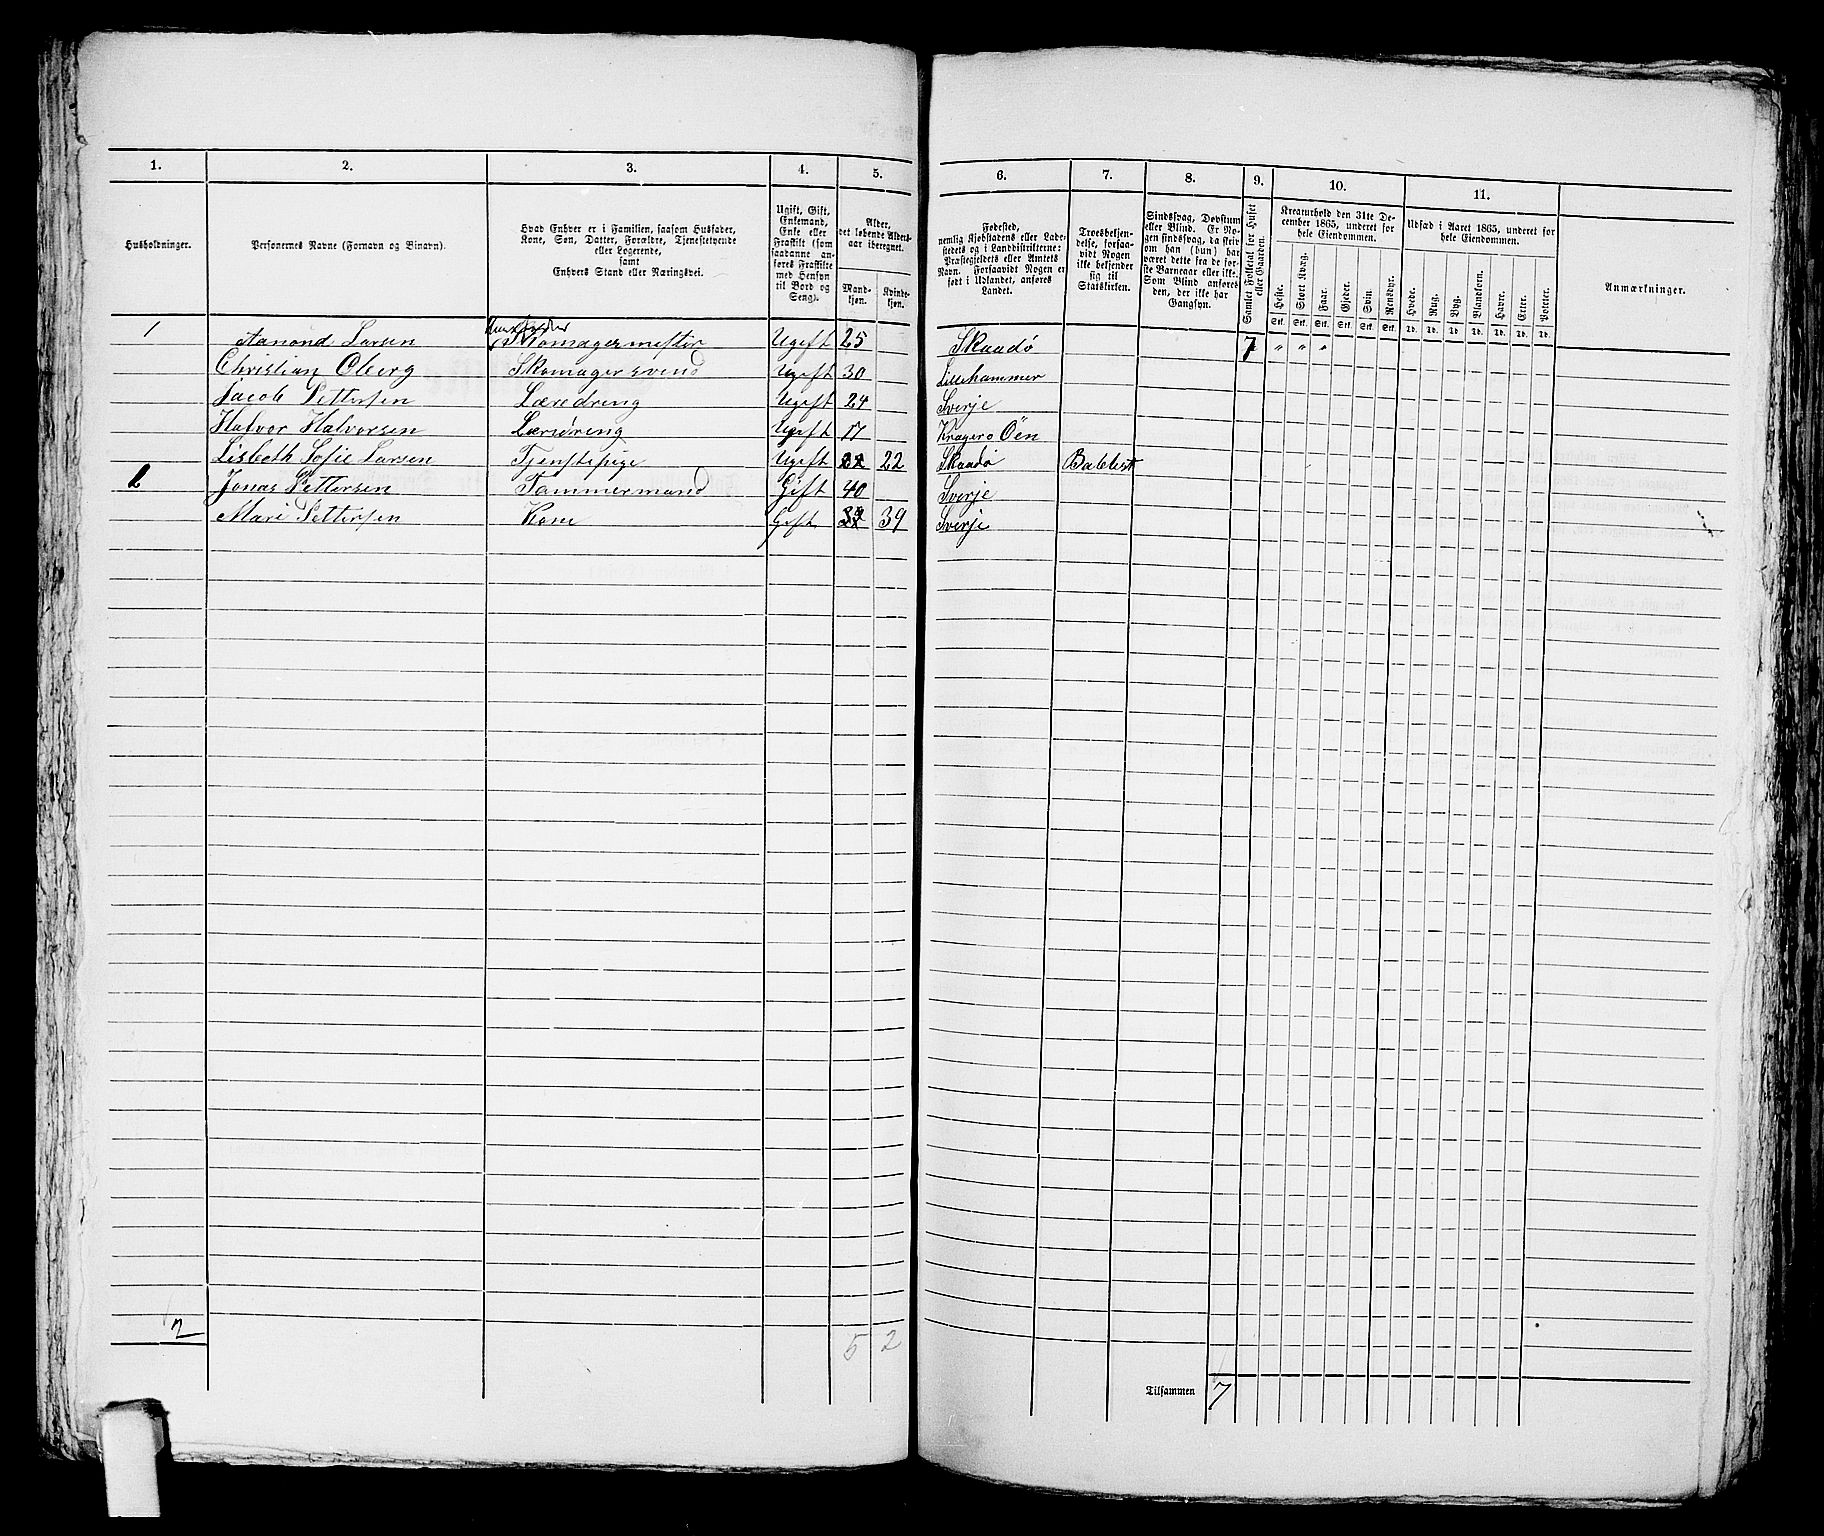 1. 2. 3. 4. 5. 6. 7. 8. 9. 10. 11.
Husholdninger.
Personernes Navne (Fornavn og Binavn).
Hvad Enhver er i Familien, saasom Husfader,
Kone, Søn, Datter, Forældre, Tjenstetyende
eller Logerende,
samt
Enhvers Stand eller Næringsvei.
Ugift, Gift,
Enkemand,
Enke eller
Fraskilt (som
saadanne an-
føres Fraskilte
med Hensyn
til Bord og
Seng).
Alder,
det løbende Alders-
aar iberegnet.
Mand-
kjøn.
Kvinde-
kjøn.
Fødested,
nemlig Kjøbstadens eller Lade-
stedets og i Landdistrikterne:
Præstegjeldets eller Amtets
Navn. Forsaavidt Nogen er
født i Udlandet, anføres
Landet.
Troesbekjen-
delse, forsaa-
vidt Nogen
ikke bekjender
sig til
Statskirken.
Sindssvag, Døvstum
eller Blind. Er No-
gen sindssvag, da skriv
om han (hun) har
været dette fra de før-
ste Barneaar eller ikke.
Som Blind anføres
den, der ikke har
Gangsyn.
Samlet Folketal for Huset
eller Gaarden.
Kreaturhold den 31te De-
cember 1865, underet for
hele Eiendommen.
Heste. Stort Kvæg. Faar. Gjeder. Svin. Rensdyr.
Stk. Stk. Stk. Stk. Stk. Stk.
Udsæd i Aaret 1865, underet for
hele Eiendommen.
Hvede. Rug. Byg. Blandkorn. Havre. Erter. Poteter.
Td. Td. Td. Td. Td. Td. Td.
Anmærkninger.
1 Aanond Larsen Skomagermester Ugift 25 Skaadø 7 " " "
Christian Oberg Skomagersvend Ugift 30 Lillehammer
Jacob Pettersen Læredreng Ugift 24 Sverje
Halvor Halvorsen Læredreng Ugift 17 Kragerø Øen
Lisbeth Sofie Larsen Tjenstepige Ugift 22 22 Skaadø Babtist
2 Jonas Pettersen Tømmermand Gift 40 Sverje
Mari Pettersen Kone Gift 39 39 Sverje
2 5 2
Tilsammen 7